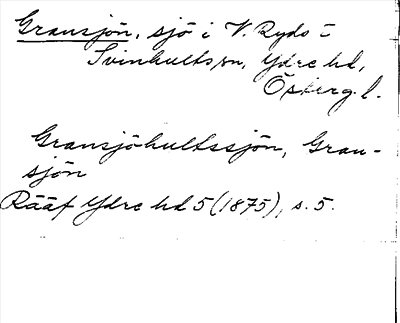 Gransjön, sjö i V. Ryds o
Svinhults sn, Ydre hd,
Österg. l.
Gransjöhultssjön, Gran-
sjön
Rääf Ydre hd 5 (1875), s. 5.